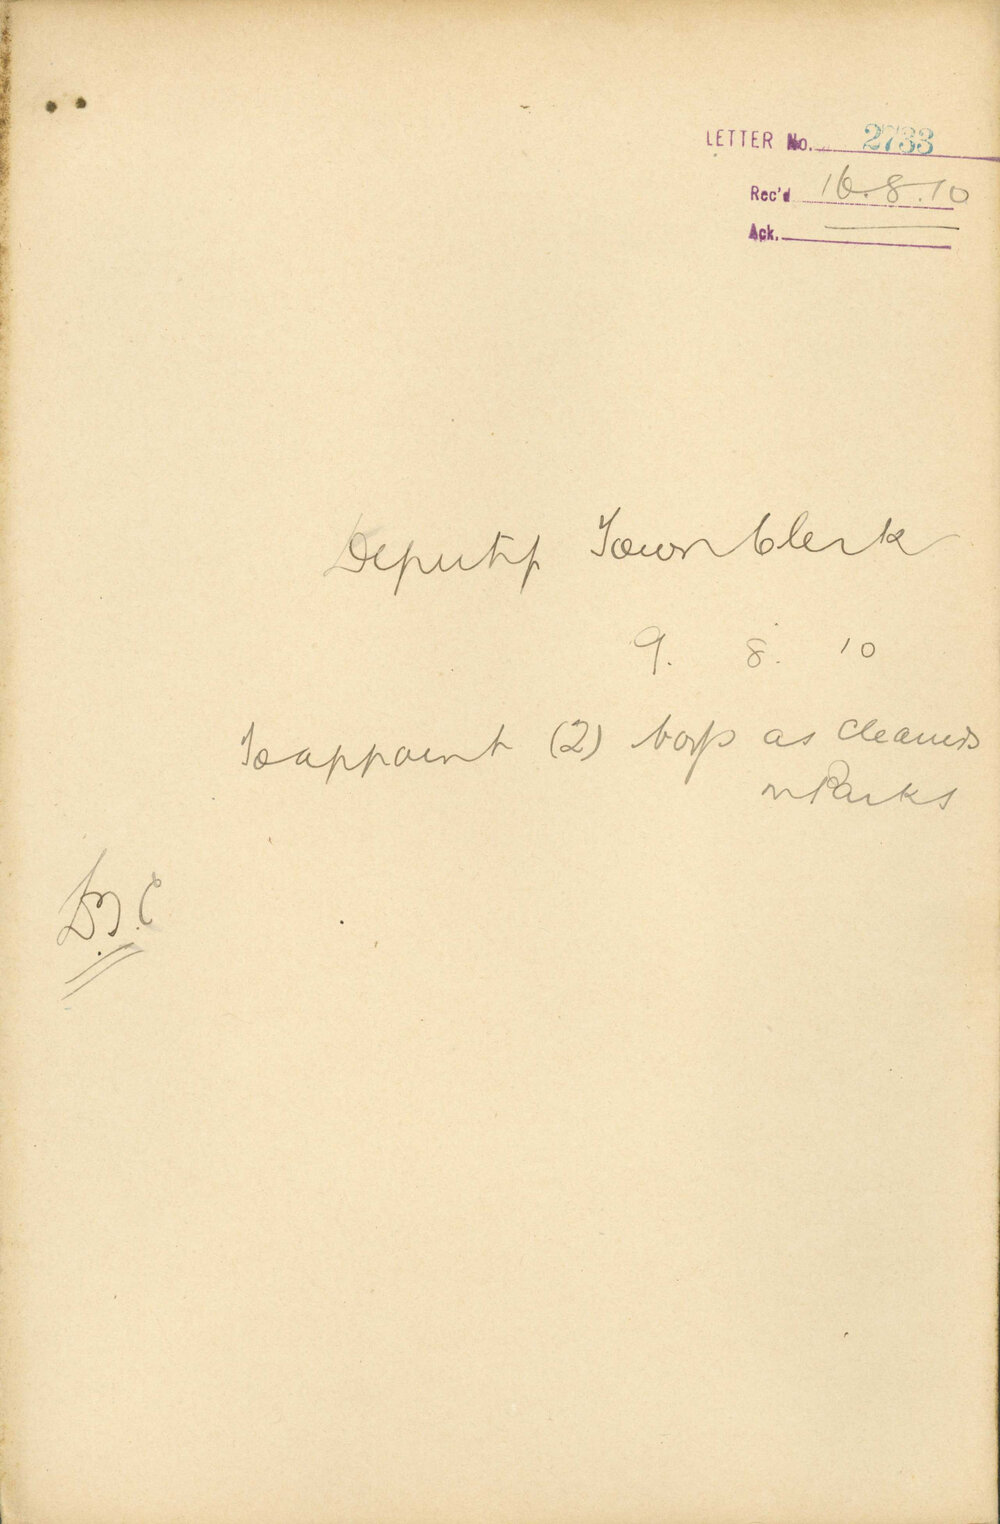 LETTER No. 2733
Rec'd 16.8.10
Ack.
Deputy Town Clerk
9. 8. 10
To appoint (2) boys as cleaners
in Parks